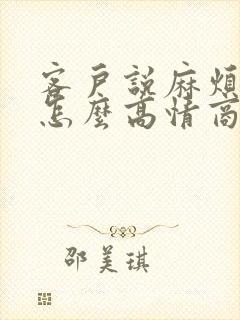 客戶說麻煩
怎麼高情商
邵美琪